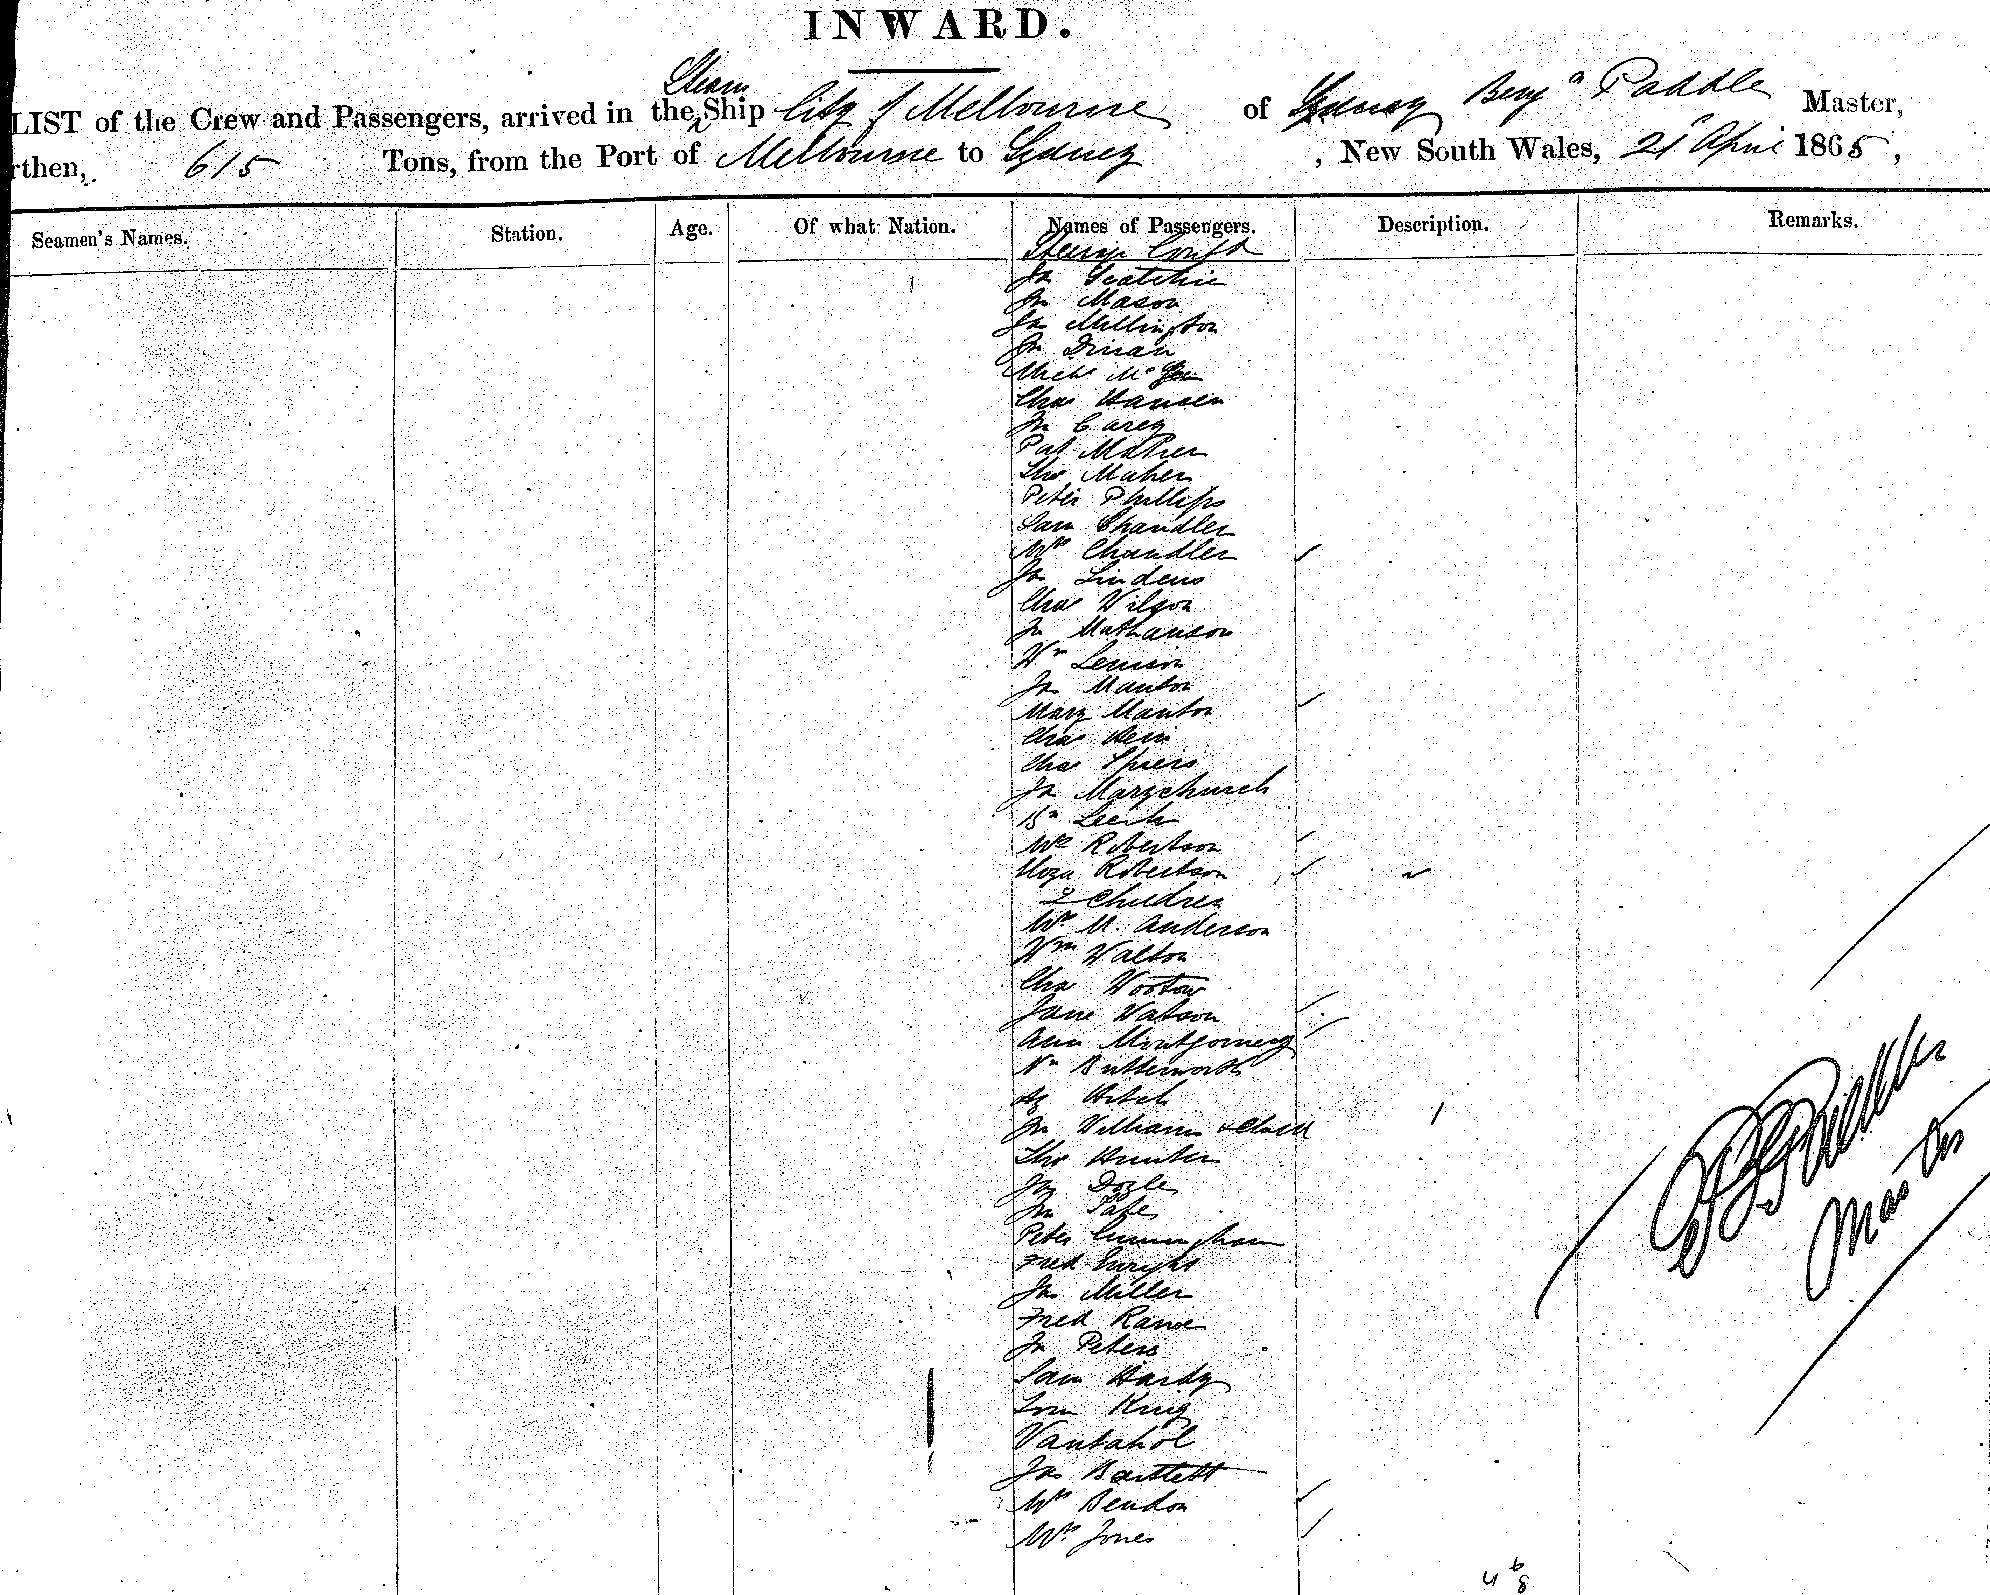 INWARD.
LIST of the Crew and Passengers, arrived in the Steam Ship City of Melbourne of Sydney Benjn Paddle Master,
rthen, 615 Tons, from the Port of Melbourne to Sydney, New South Wales, 21st April 1865,
Seamen's Names. Station. Age. Of what Nation. Names of Passengers. Description. Remarks.
Steerage Contd
Jas
Jn Mason
Jas Millington
Jn Dinan
Michl Mc
Chas Hansen
Jn Carey
Pat Maher
Thos Maher
Peter Phillips
Sam Chandler
Mrs Chandler
Jas Lindens
Chas Wilson
Jn Mathanson
Wm
Jas Manton
Mary Manton
Chas
Chas Spiers
Jas Marychurch
Leech
Mrs Robertson
Robertson
2 Children
M. Anderson
Wm Walton
Chas
Jane Watson
Ann Montgomery
Wm Butterworth
Hy
Jn Williams & Child
Thos Hunter
Jas Doyle
Jn
Peter Cunningham
Fred Enright
Jas Miller
Fred
Jn Peters
Sam Hardy
Tom King
Vantahol
Jas Bartlett
Mrs Bendon
Mrs Jones
Paddle
Master